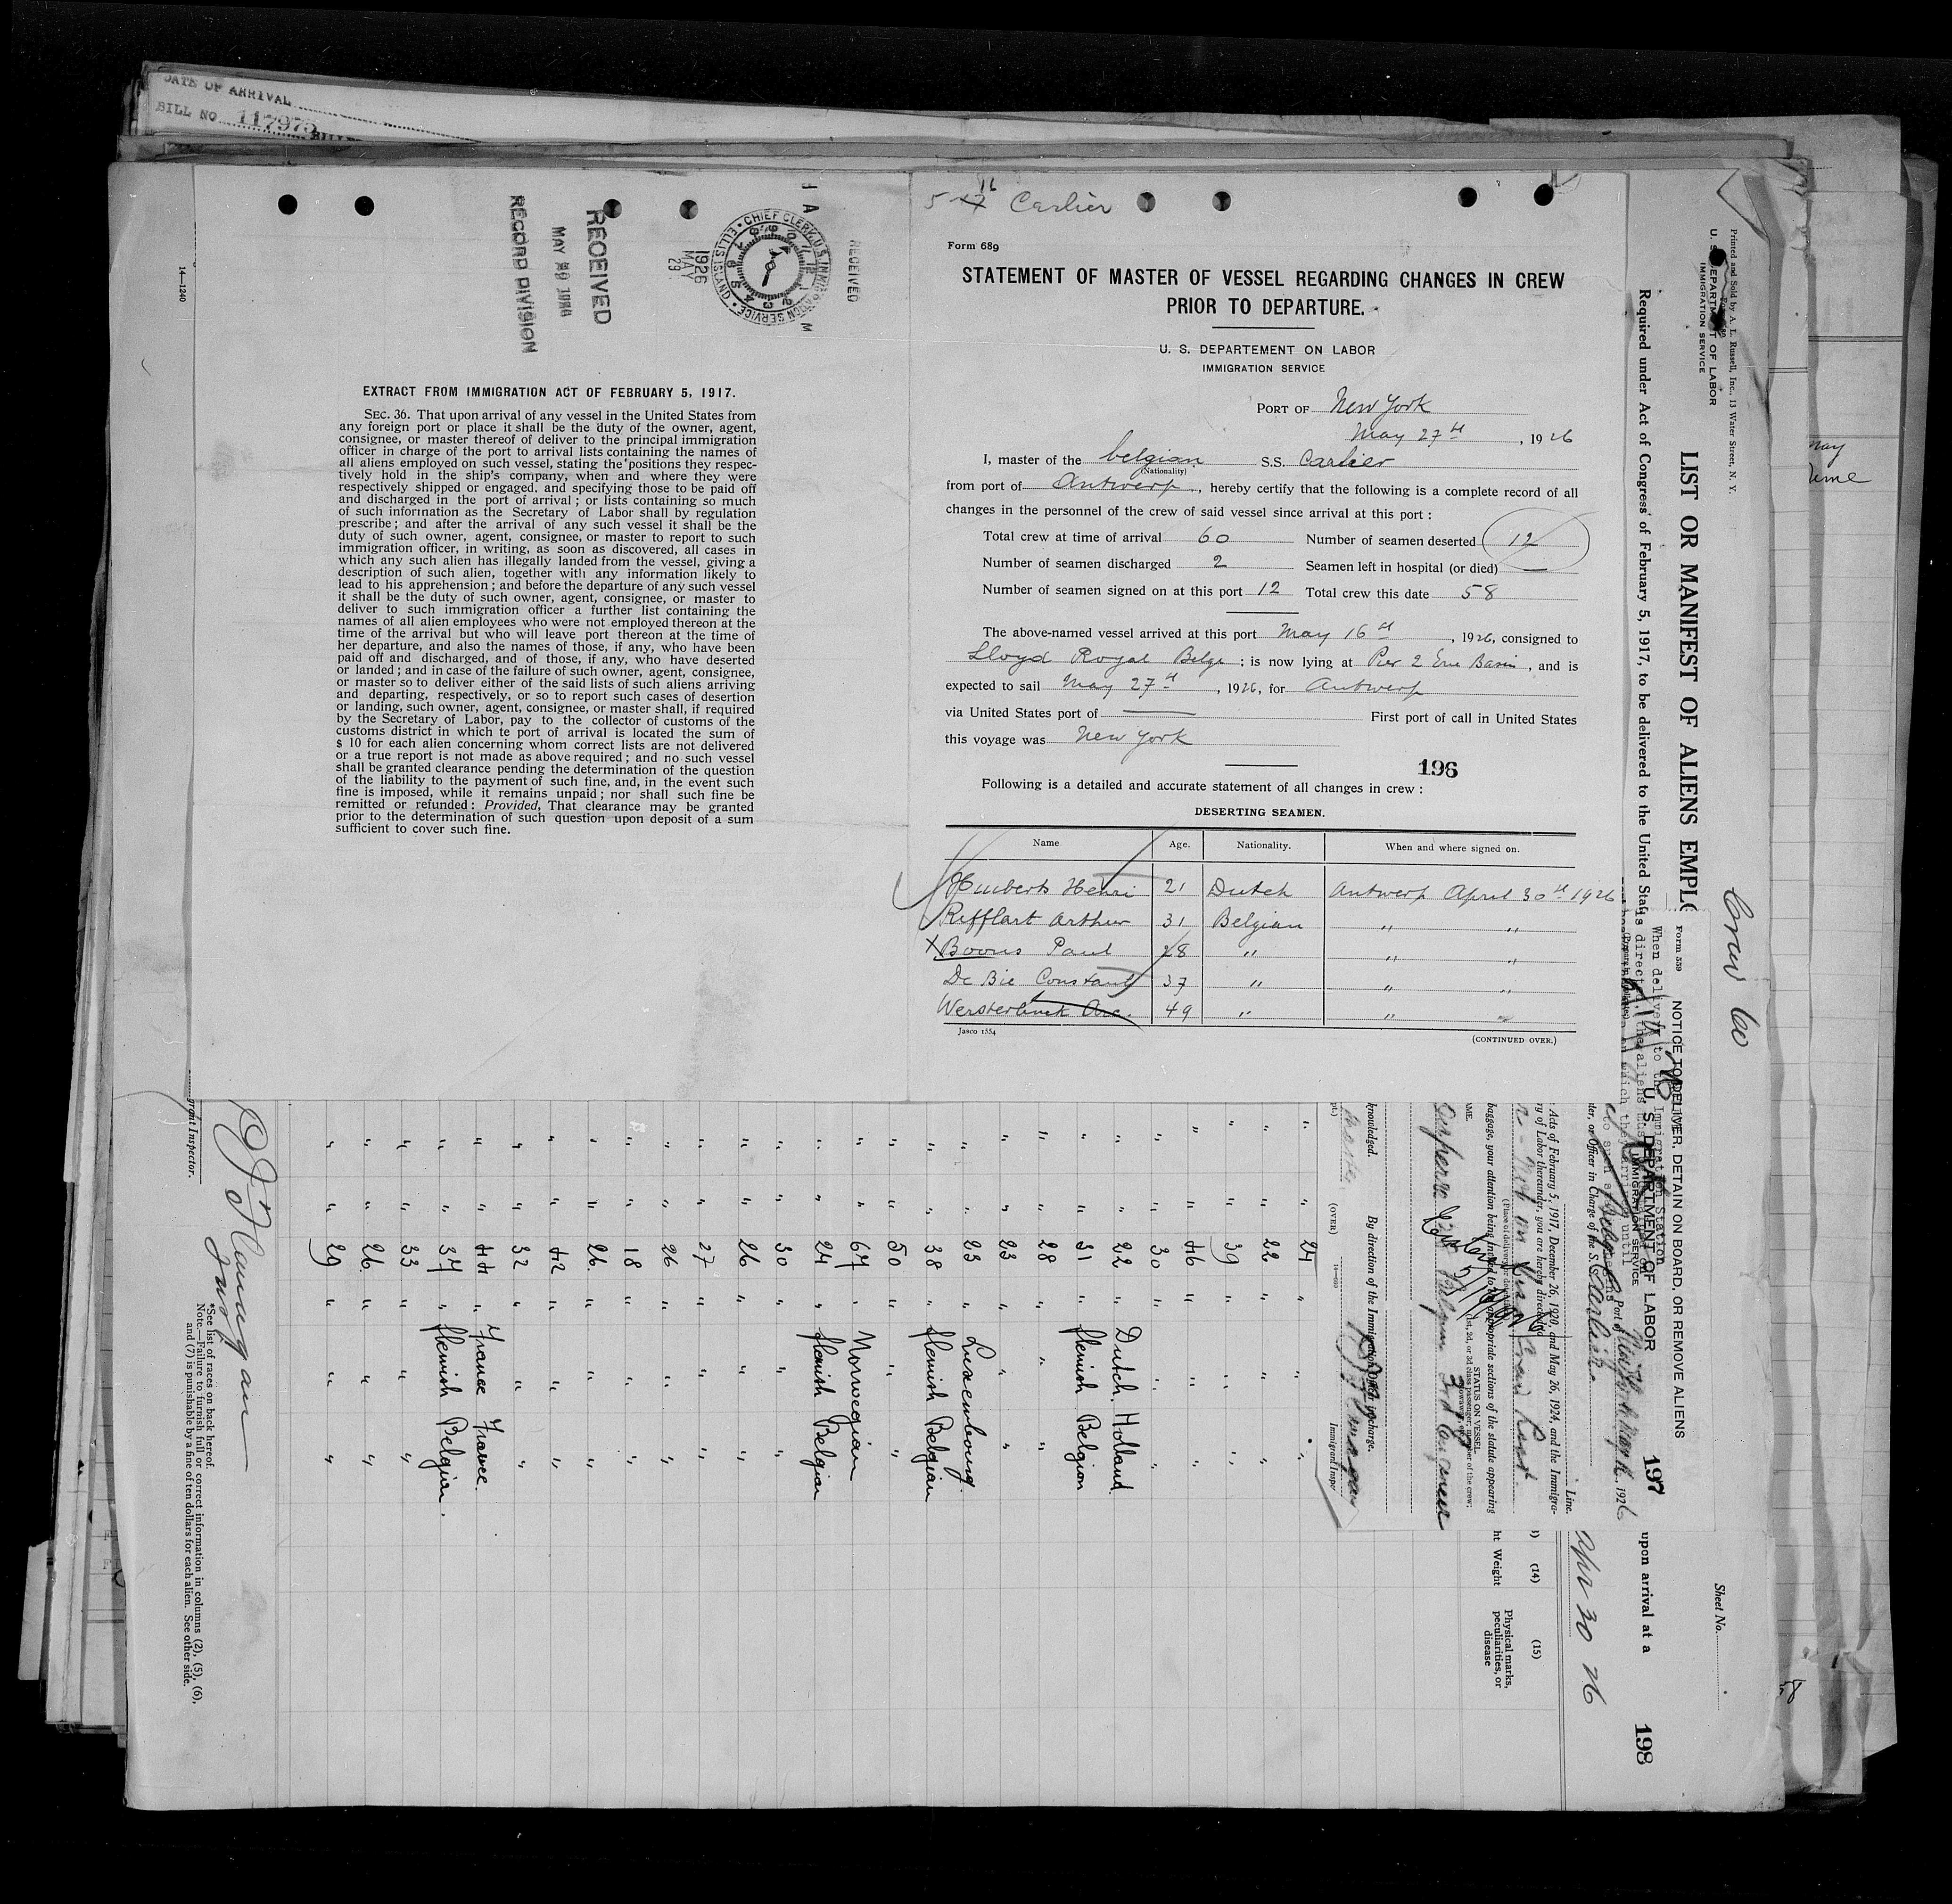 DATE OF ARRIVAL
BILL NO. 117975
14—1240
RECEIVED
MAY 29 1926
RECORD DIVISION
CHIEF CLERK, U.S. IMMIGRATION SERVICE
ELLIS ISLAND
1926
MAY
29
RECEIVED
EXTRACT FROM IMMIGRATION ACT OF FEBRUARY 5, 1917.
SEC. 36. That upon arrival of any vessel in the United States from
any foreign port or place it shall be the duty of the owner, agent,
consignee, or master thereof of deliver to the principal immigration
officer in charge of the port to arrival lists containing the names of
all aliens employed on such vessel, stating the positions they respec-
tively hold in the ship's company, when and where they were
respectively shipped or engaged, and specifying those to be paid off
and discharged in the port of arrival ; or lists containing so much
of such information as the Secretary of Labor shall by regulation
prescribe ; and after the arrival of any such vessel it shall be the
duty of such owner, agent, consignee, or master to report to such
immigration officer, in writing, as soon as discovered, all cases in
which any such alien has illegally landed from the vessel, giving a
description of such alien, together with any information likely to
lead to his apprehension ; and before the departure of any such vessel
it shall be the duty of such owner, agent, consignee, or master to
deliver to such immigration officer a further list containing the
names of all alien employees who were not employed thereon at the
time of the arrival but who will leave port thereon at the time of
her departure, and also the names of those, if any, who have been
paid off and discharged, and of those, if any, who have deserted
or landed ; and in case of the failure of such owner, agent, consignee,
or master so to deliver either of the said lists of such aliens arriving
and departing, respectively, or so to report such cases of desertion
or landing, such owner, agent, consignee, or master shall, if required
by the Secretary of Labor, pay to the collector of customs of the
customs district in which te port of arrival is located the sum of
$ 10 for each alien concerning whom correct lists are not delivered
or a true report is not made as above required ; and no such vessel
shall be granted clearance pending the determination of the question
of the liability to the payment of such fine, and, in the event such
fine is imposed, while it remains unpaid ; nor shall such fine be
remitted or refunded : Provided, That clearance may be granted
prior to the determination of such question upon deposit of a sum
sufficient to cover such fine.
5-16 Carlier
Form 689
STATEMENT OF MASTER OF VESSEL REGARDING CHANGES IN CREW
PRIOR TO DEPARTURE.
U. S. DEPARTEMENT ON LABOR
IMMIGRATION SERVICE
PORT OF New York
May 27th, 1926
I, master of the belgian S.S. Carlier
(Nationality)
from port of Antwerp, hereby certify that the following is a complete record of all
changes in the personnel of the crew of said vessel since arrival at this port :
Total crew at time of arrival 60 Number of seamen deserted 12
Number of seamen discharged 2 Seamen left in hospital (or died) —
Number of seamen signed on at this port 12 Total crew this date 58
The above-named vessel arrived at this port May 16th, 1926, consigned to
Lloyd Royal Belge ; is now lying at Pier 2 Erie Basin, and is
expected to sail May 27th, 1926, for Antwerp
via United States port of — First port of call in United States
this voyage was New York
196
Following is a detailed and accurate statement of all changes in crew :
DESERTING SEAMEN.
Name Age. Nationality. When and where signed on.
Huiberts Henri 21 Dutch Antwerp April 30th 1926
Rifflart Arthur 31 Belgian " "
X Boons Paul 28 " " "
De Bie Constant 37 " " "
49 " " "
Jasco 1554
(CONTINUED OVER.)
Printed and Sold by A. L. Russell, Inc., 13 Water Street, N. Y.
U. S. DEPARTMENT OF LABOR
IMMIGRATION SERVICE
LIST OR MANIFEST OF ALIENS EMPLO
Required under Act of Congress of February 5, 1917, to be delivered to the United Sta
upon arrival at a
Sheet No.
Crew 60
Apr 30 26
198
Form 559
NOTICE TO DELIVER, DETAIN ON BOARD, OR REMOVE ALIENS
U. S. DEPARTMENT OF LABOR
IMMIGRATION SERVICE
197
Port of New York, N.Y.
, 1926
ter, or Officer in Charge of the S.S. Carlier
Line.
Acts of February 5, 1917, December 26, 1920, and May 26, 1924, and the Immigra-
ry of Labor thereunder, you are hereby directed
baggage, your attention being invited to the appropriate sections of the statute appearing
STATUS ON VESSEL
knowledged.
By direction of the Immigration Officer in charge.
(OVER)
Immigrant Inspec
(14)
(15)
ht Weight
Physical marks, peculiarities, or disease
24 " "
22 " "
39 " "
46 " "
30 " "
22 " Dutch Holland
31 " flemish Belgian
28 " "
23 " "
23 " Luxembourg
38 " flemish Belgian
50 " "
67 " Norwegian
24 " flemish Belgian
30 " "
26 " "
27 " "
26 " "
18 " "
26 " "
42 " "
32 " "
44 " France France
37 " flemish Belgian
33 " "
26 " "
29 " "
grant Inspector.
*See list of races on back hereof.
Note.—Failure to furnish full or correct information in columns (2), (5), (6),
and (7) is punishable by a fine of ten dollars for each alien. See other side.